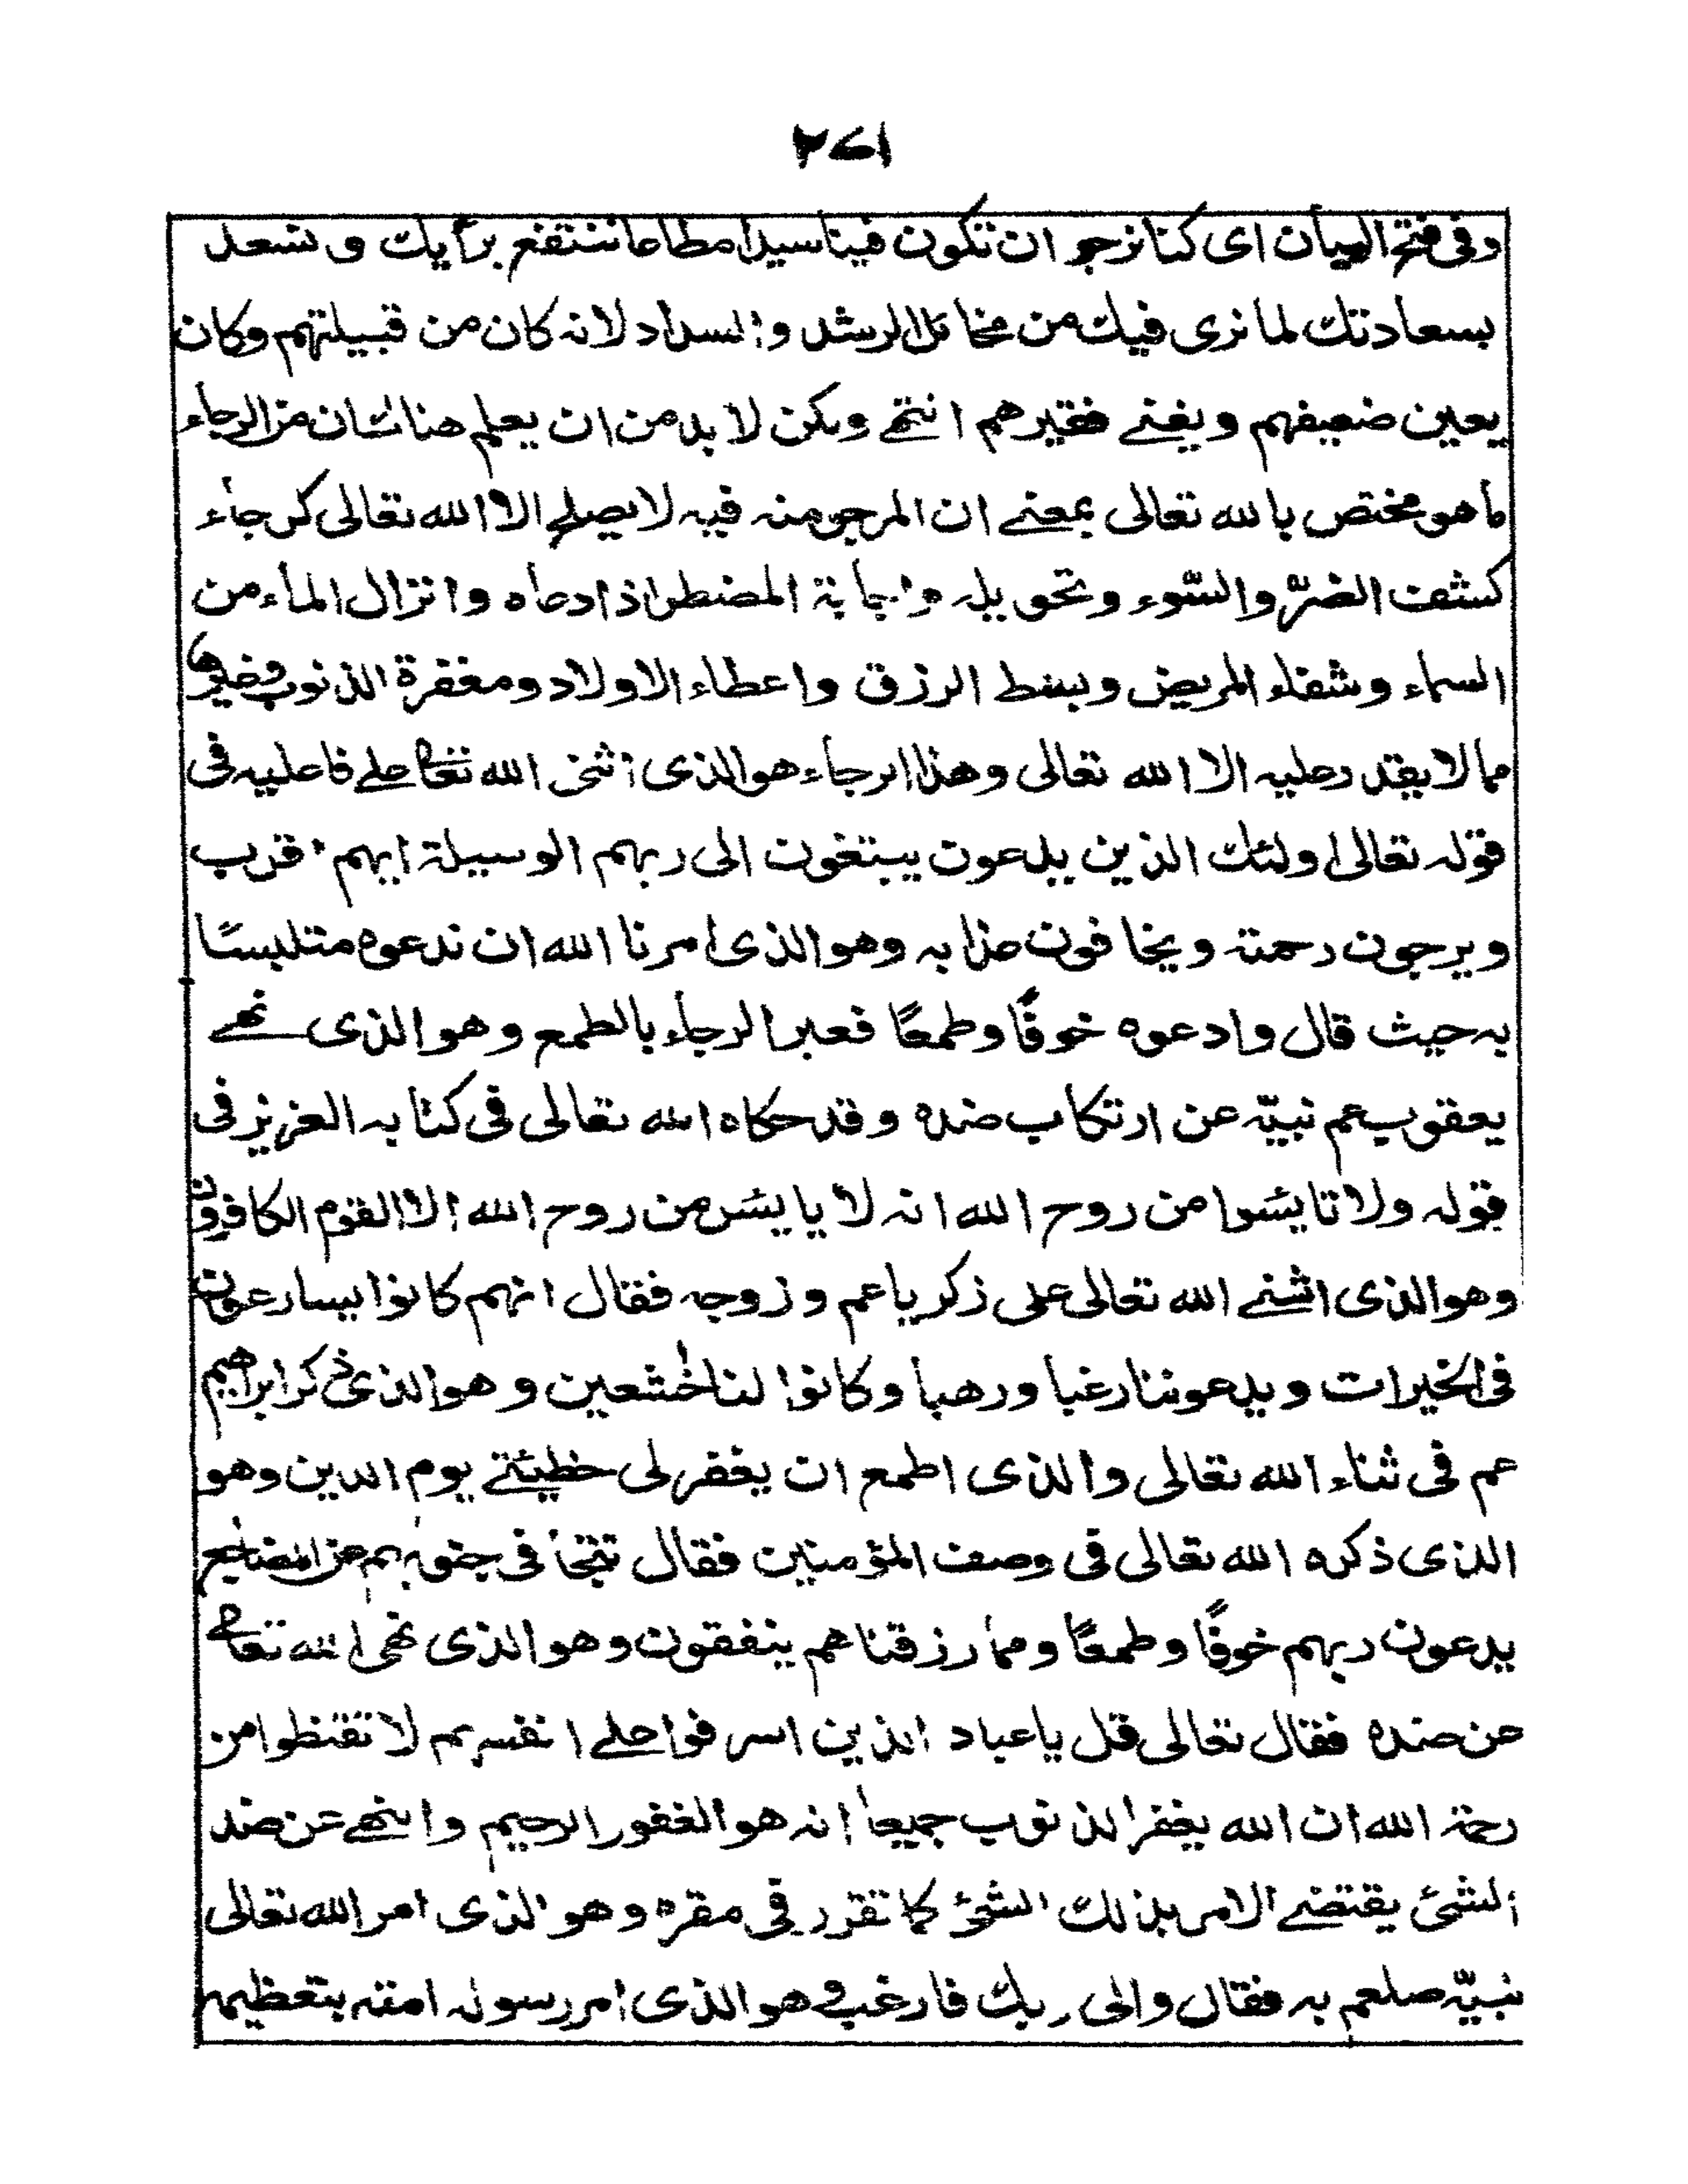 ٢٧١
وفى فتح البيان اى كنا نرجو ان تكون فينا سيدا مطاعا ننتفع برأيك و نسعد
بسعادتك لما نرى فيك من مخائل الرشد والسداد لانه كان من قبيلتهم وكان
يعين ضعيفهم ويغنے فقيرهم انتهے ولكن لا بد من ان يعلم هنا ان من الرجاء
ما هو مختص بالله تعالى بمعنے ان المرجو منه فيه لا يصلح الا الله تعالى كرجاء
كشف الضرّ والسّوء وتحويله واجابة المضطر اذا دعاه وانزال الماء من
السماء وشفاء المريض وبسط الرزق واعطاء الاولاد ومغفرة الذنوب وغيرها
مما لا يقدر عليه الا الله تعالى وهذا الرجاء هو الذى اثنى الله تعالے علے فاعليه فى
قوله تعالى اولئك الذين يدعون يبتغون الى ربهم الوسيلة ايهم اقرب
ويرجون رحمته ويخافون عذابه وهو الذى امرنا الله ان ندعوه متلبسًا
به حيث قال وادعوه خوفًا وطمعًا فعبر الرجاء بالطمع وهو الذى نهے
يعقوب عم نبيّه عن ارتكاب ضده وقد حكاه الله تعالى فى كتابه العزيز فى
قوله ولا تايئسوا من روح الله انه لا يايئس من روح الله الا القوم الكافرون
وهو الذى اثنے الله تعالى على ذكريا عم وزوجه فقال انهم كانوا يسارعون
فى الخيرات ويدعوننا رغبا ورهبا وكانوا لنا خٰشعين وهو الذى ذكر ابراهيم
عم فى ثناء الله تعالى والذى اطمع ان يغفر لى خطيئتے يوم الدين وهو
الذى ذكره الله تعالى فى وصف المؤمنين فقال تتجافى جنوبهم عن المضاجع
يدعون ربهم خوفًا وطمعًا ومما رزقناهم ينفقون وهو الذى نهى الله تعالے
عن ضده فقال تعالى قل ياعباد الذين اسرفوا علے انفسهم لا تقنطوا من
رحمة الله ان الله يغفر الذنوب جميعا انه هو الغفور الرحيم والنهے عن ضد
الشئ يقتضے الامر بذلك الشئ كما تقرر فى مقره وهو الذى امر الله تعالى
نبيّه صلعم به فقال والى ربك فارغب وهو الذى امر رسوله امته بتعظيم